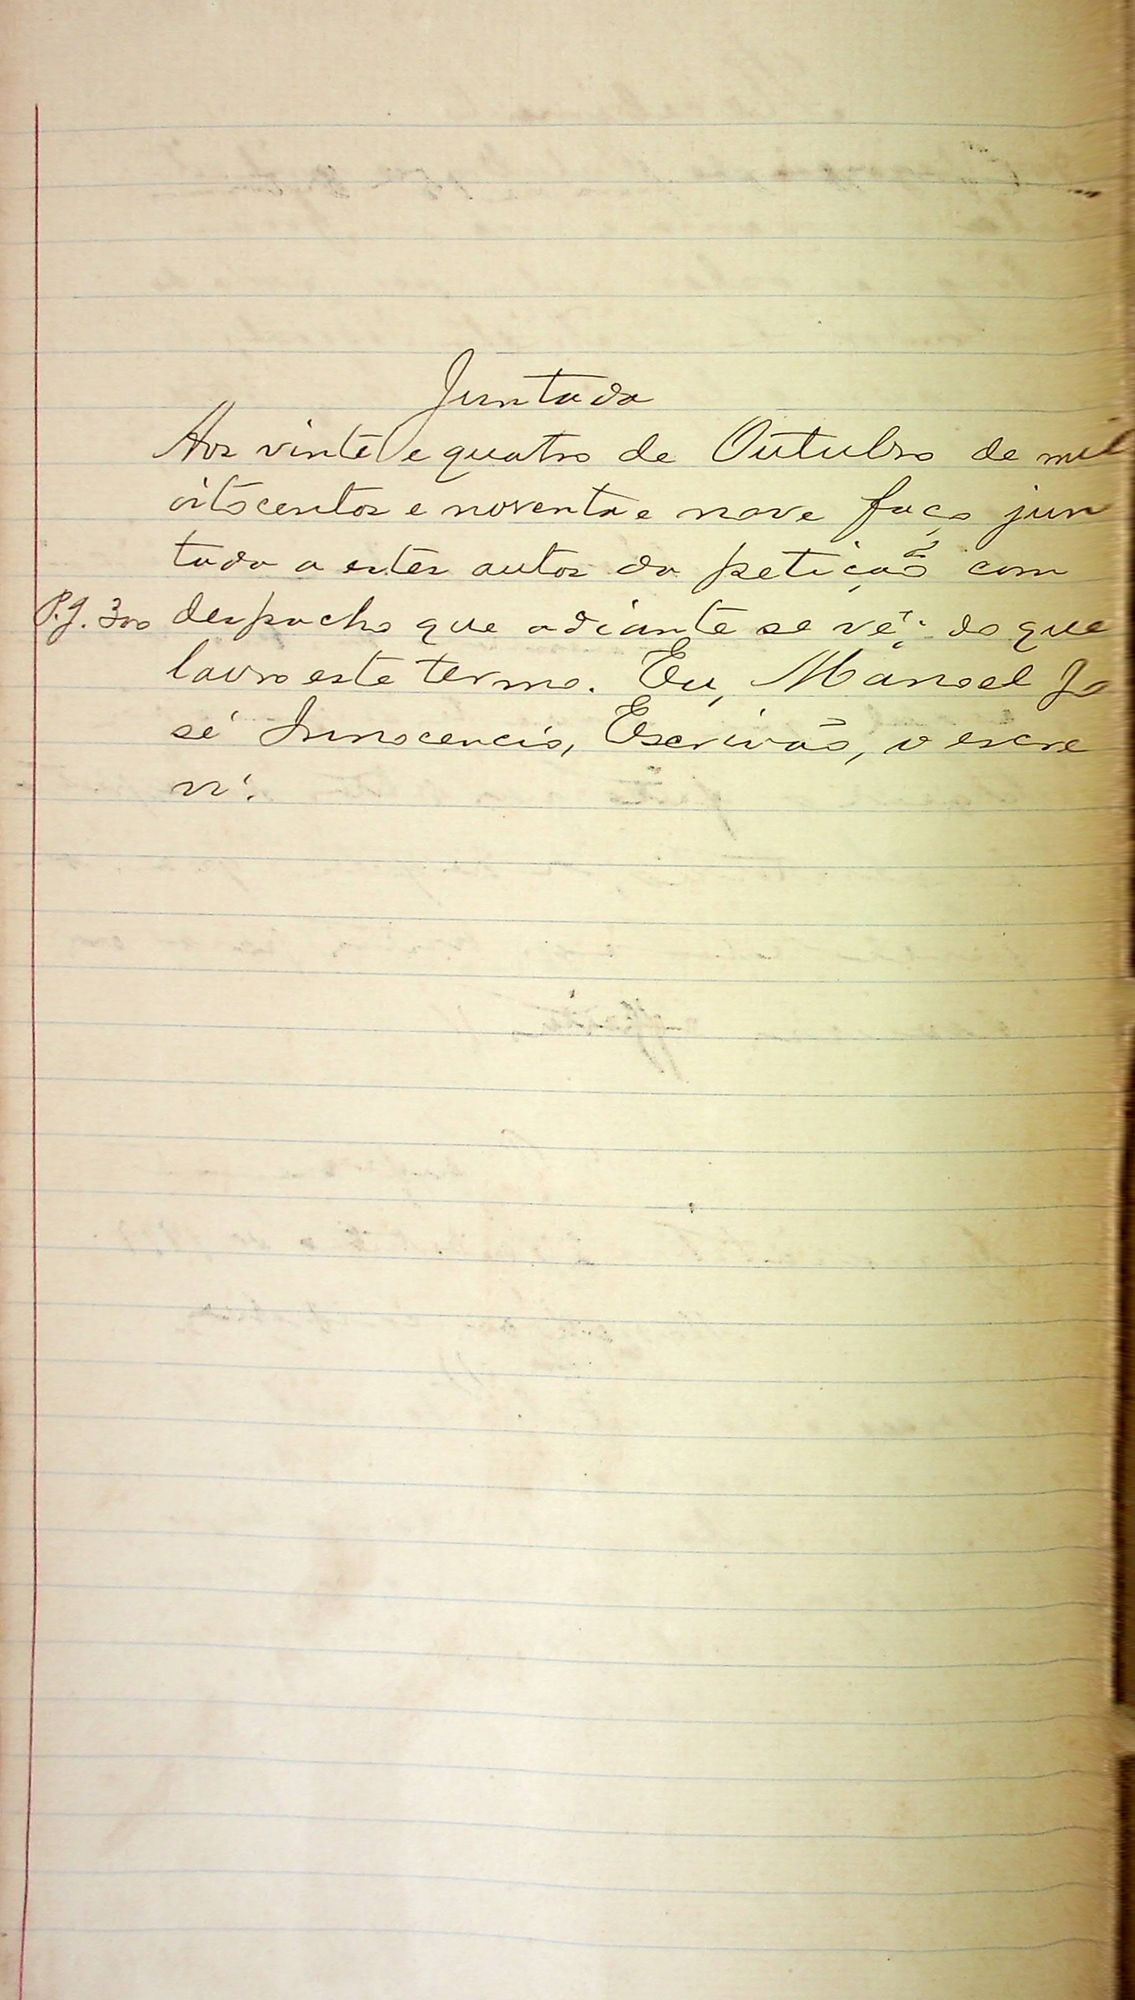 Juntada
Aos vinte e quatro de Outubro de mil
oitocentos e noventa e nove faço jun
tada a estes autos da petição com
P.J. 300 despacho que adiante se vê; do que
lavro este termo. Eu, Manoel Jo
sé Innocencio, Escrivão, o escre
vi.